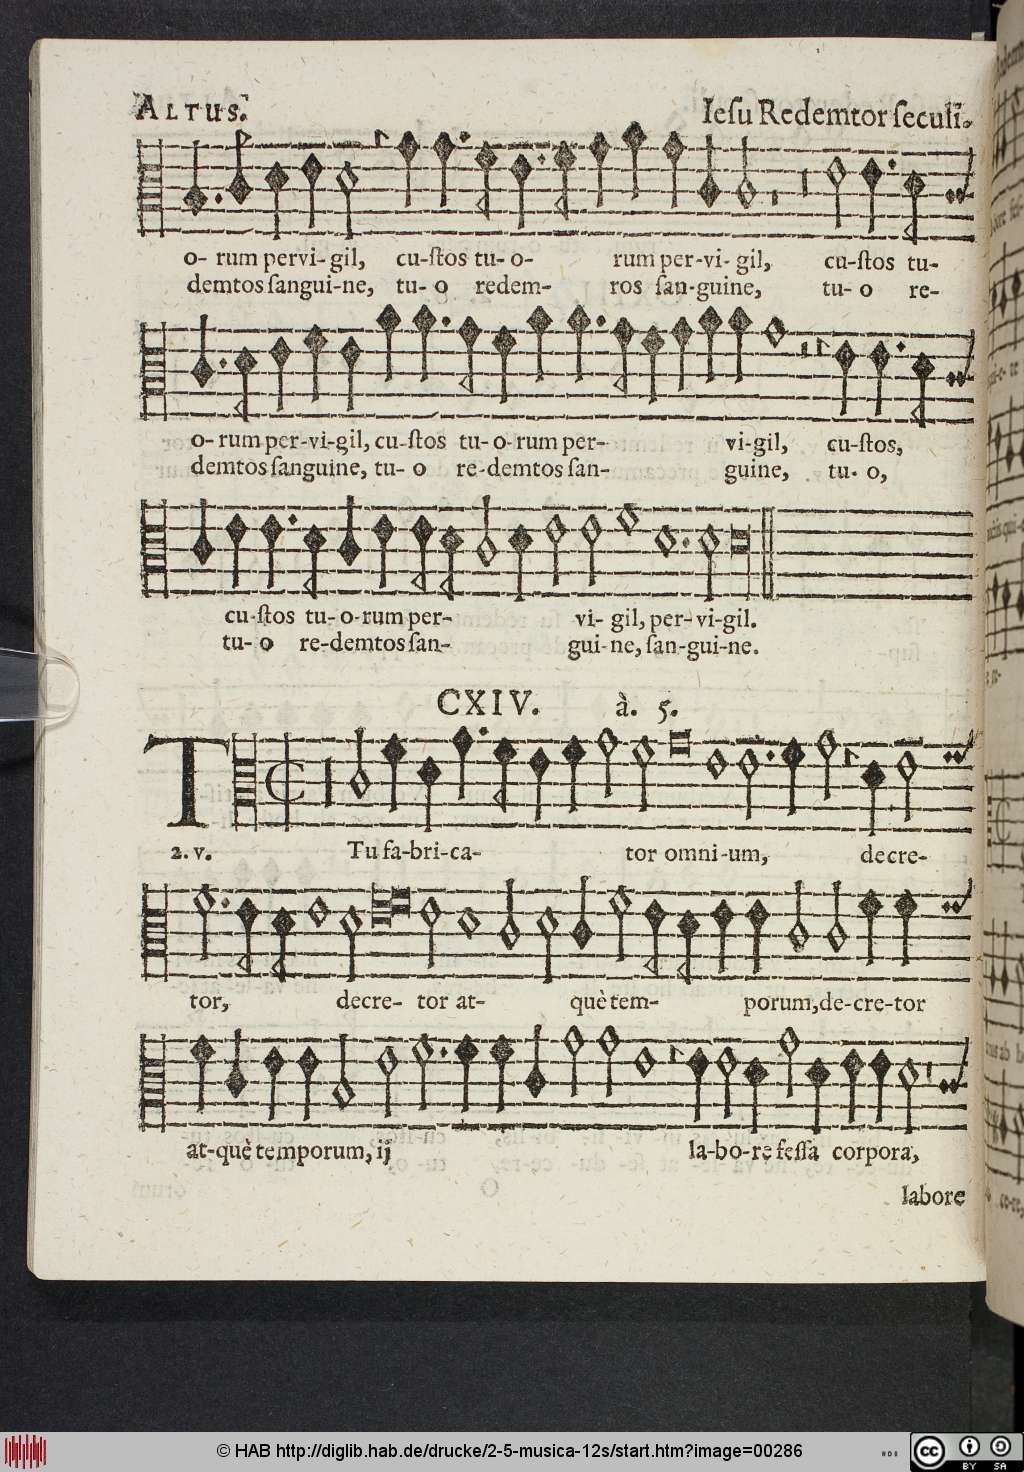 ALTUS.
Iesu Redemtor seculi.
o- rum pervi- gil, cu-ſtos tu- o- rum per-vi- gil, cu-ſtos tu-
demtos ſangui-ne, tu- o redem- ros ſan-guine, tu- o re-
o- rum per-vi-gil, cu-ſtos tu-o-rum per- vi-gil, cu-ſtos,
demtos ſanguine, tu- o re-demtos ſan- guine, tu- o,
cu-ſtos tu-o-rum per- vi- gil, per-vi-gil.
tu- o re-demtos ſan- gui-ne, ſan-gui-ne.
CXIV. à. 5.
T
2. v. Tu fa-bri-ca- tor omni-um, decre-
tor, decre- tor at- què tem- porum, de-cre-tor
at-què temporum, ij la-bo-re feſſa corpora,
labore
© HAB http://diglib.hab.de/drucke/2-5-musica-12s/start.htm?image=00286
cc BY SA